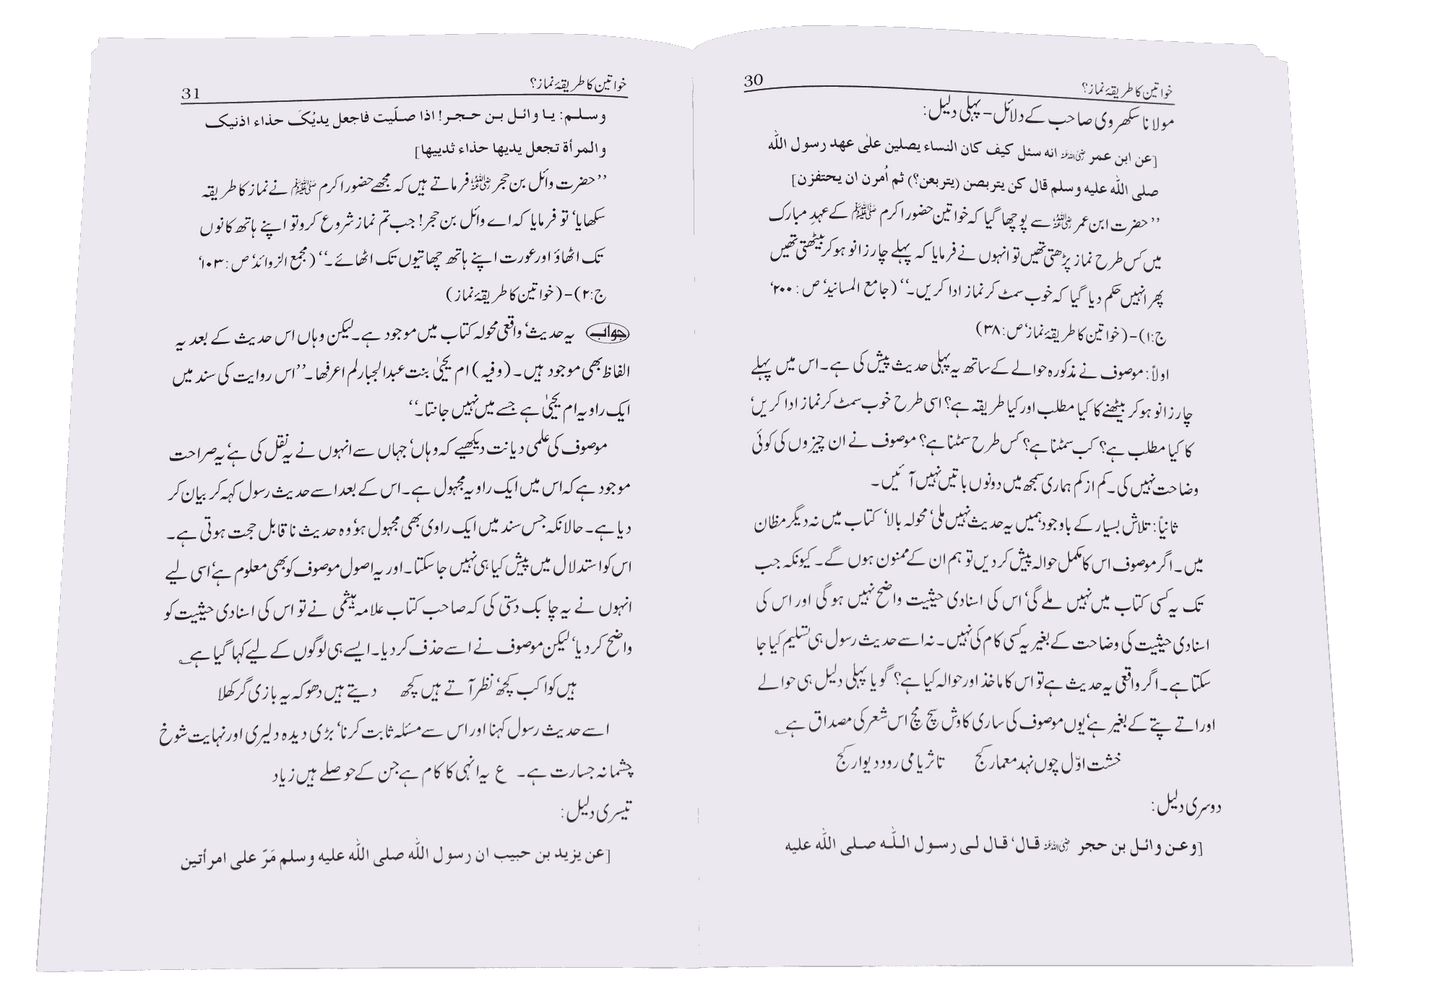 خواتین کا طریقۂ نماز؟
30
مولانا سکھروی صاحب کے دلائل – پہلی دلیل:
[عن ابن عمر رضی اللہ عنہ انه سئل کیف کان النساء یصلین علیٰ عهد رسول اللّٰه
صلی اللّٰه علیه وسلم قال کن یتربصن (یتربعن؟) ثم أمرن ان یحتفزن]
’’حضرت ابن عمر رضی اللہ عنہ سے پوچھا گیا کہ خواتین حضور اکرم ﷺ کے عہدِ مبارک
میں کس طرح نماز پڑھتی تھیں تو انہوں نے فرمایا کہ پہلے چار زانو ہوکر بیٹھتی تھیں
پھر انہیں حکم دیا گیا کہ خوب سمٹ کر نماز ادا کریں۔‘‘ (جامع المسانید‘ ص: ۴۰۰‘
ج:۱)–(خواتین کا طریقۂ نماز‘ ص:۳۸)
اولاً: موصوف نے مذکورہ حوالے کے ساتھ یہ پہلی حدیث پیش کی ہے۔ اس میں پہلے
چار زانو ہو کر بیٹھنے کا کیا مطلب اور کیا طریقہ ہے؟ اسی طرح خوب سمٹ کر نماز ادا کریں‘
کا کیا مطلب ہے؟ کب سمٹنا ہے؟ کس طرح سمٹنا ہے؟ موصوف نے ان چیزوں کی کوئی
وضاحت نہیں کی۔ کم از کم ہماری سمجھ میں دونوں باتیں نہیں آئیں۔
ثانیاً: تلاش بسیار کے باوجود ہمیں یہ حدیث نہیں ملی‘ محولہ بالا‘ کتاب میں نہ دیگر مظان
میں۔ اگر موصوف اس کا مکمل حوالہ پیش کردیں تو ہم ان کے ممنون ہوں گے۔ کیونکہ جب
تک یہ کسی کتاب میں نہیں ملے گی‘ اس کی اسنادی حیثیت واضح نہیں ہوگی اور اس کی
اسنادی حیثیت کی وضاحت کے بغیر یہ کسی کام کی نہیں۔ نہ اسے حدیث رسول ہی تسلیم کیا جا
سکتا ہے۔ اگر واقعی یہ حدیث ہے تو اس کا ماخذ اور حوالہ کیا ہے؟ گویا پہلی دلیل ہی حوالے
اور اتے پتے کے بغیر ہے‘ یوں موصوف کی ساری کاوش سچ مچ اس شعر کی مصداق ہے ؎
خشت اوّل چوں نہد معمار کج تا ثریا می رود دیوار کج
دوسری دلیل:
[وعن وائل بن حجر رضی اللہ عنہ قال‘ قال لی رسول اللّٰه صلی اللّٰه علیه
خواتین کا طریقۂ نماز؟
31
وسلم: یا وائل بن حجر! اذا صلّیت فاجعل یدیْکَ حذاء اذنیک
والمرأة تجعل یدیها حذاء ثدییها]
’’حضرت وائل بن حجر رضی اللہ عنہ فرماتے ہیں کہ مجھے حضور اکرم ﷺ نے نماز کا طریقہ
سکھایا‘ تو فرمایا کہ اے وائل بن حجر! جب تم نماز شروع کرو تو اپنے ہاتھ کانوں
تک اٹھاؤ اور عورت اپنے ہاتھ چھاتیوں تک اٹھائے۔‘‘ (مجمع الزوائد‘ ص:۱۰۳‘
ج:۲)–(خواتین کا طریقۂ نماز)
جواب یہ حدیث‘ واقعی محولہ کتاب میں موجود ہے۔ لیکن وہاں اس حدیث کے بعد یہ
الفاظ بھی موجود ہیں۔ (وفیه) ام یحییٰ بنت عبدالجبار لم اعرفها۔ ’’اس روایت کی سند میں
ایک راویہ ام یحییٰ ہے جسے میں نہیں جانتا۔‘‘
موصوف کی علمی دیانت دیکھیے کہ وہاں‘ جہاں سے انہوں نے یہ نقل کی ہے‘ یہ صراحت
موجود ہے کہ اس میں ایک راویہ مجہول ہے۔ اس کے بعد اسے حدیث رسول کہہ کر بیان کر
دیا ہے۔ حالانکہ جس سند میں ایک راوی بھی مجہول ہو‘ وہ حدیث ناقابل حجت ہوتی ہے۔
اس کو استدلال میں پیش کیا ہی نہیں جاسکتا۔ اور یہ اصول موصوف کو بھی معلوم ہے‘ اسی لیے
انہوں نے یہ چابک دستی کی کہ صاحب کتاب علامہ ہیثمی نے تو اس کی اسنادی حیثیت کو
واضح کر دیا‘ لیکن موصوف نے اسے حذف کر دیا۔ ایسے ہی لوگوں کے لیے کہا گیا ہے ؎
ہیں کواکب کچھ‘ نظر آتے ہیں کچھ دیتے ہیں دھوکہ یہ بازی گر کھلا
اسے حدیث رسول کہنا اور اس سے مسئلہ ثابت کرنا‘ بڑی دیدہ دلیری اور نہایت شوخ
چشمانہ جسارت ہے۔ ع یہ انہی کا کام ہے جن کے حوصلے ہیں زیاد
تیسری دلیل:
[عن یزید بن حبیب ان رسول اللّٰه صلی اللّٰه علیه وسلم مَرّ علی امرأتین